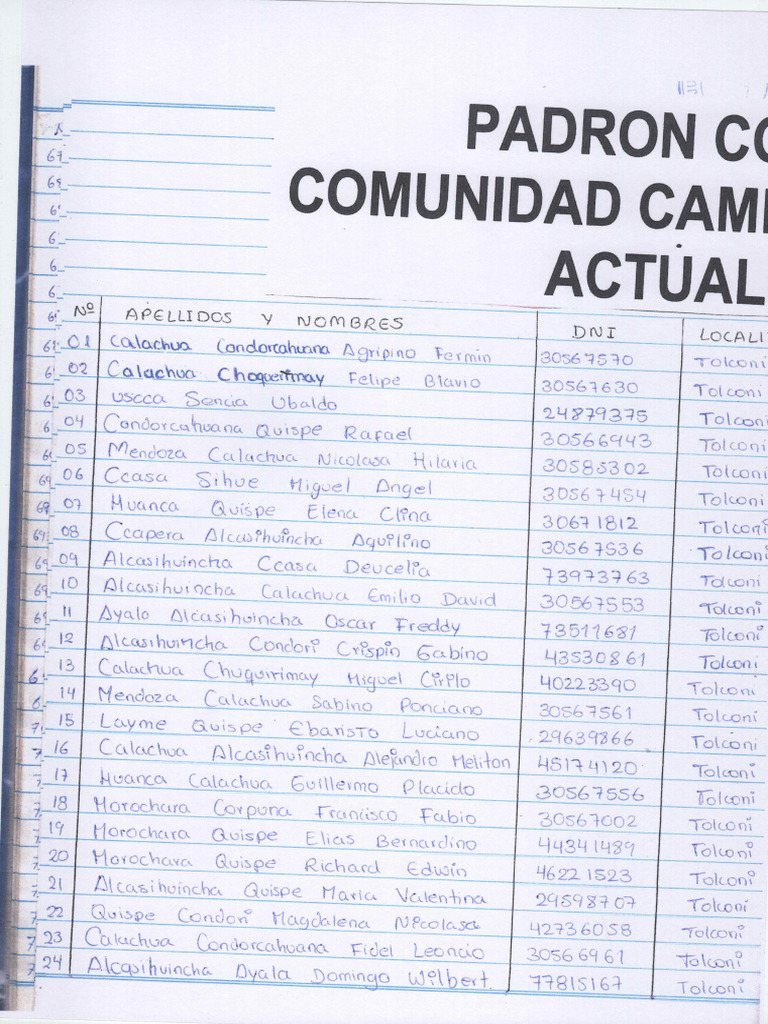 PADRON CO
COMUNIDAD CAMP
ACTUAL
Nº APELLIDOS Y NOMBRES DNI LOCALI
01 Calachua Condorcahuana Agripino Fermin 30567570 Tolconi
02 Calachua Choqueitmay Felipe Blavio 30567630 Tolconi
03 usccca Sencia Ubaldo 24879375 Tolconi
04 Condorcahuana Quispe Rafael 30566943 Tolconi
05 Mendoza Calachua Nicolasa Hilaria 30585302 Tolconi
06 Ccasa Sihue Miguel Angel 30567454 Tolconi
07 Huanca Quispe Elena Clina 30671812 Tolconi
08 Ccapera Alcasihuincha Aquilino 30567536 Tolconi
09 Alcasihuincha Ccasa Deucelia 73973763 Tolconi
10 Alcasihuincha Calachua Emilio David 30567553 Tolconi
11 Ayalo Alcasihuincha Oscar Freddy 73511681 Tolconi
12 Alcasihuincha Condori Crispin Gabino 43530861 Tolconi
13 Calachua Chuquirimay Miguel Cirilo 40223390 Tolconi
14 Mendoza Calachua Sabino Ponciano 30567561 Tolconi
15 Layme Quispe Ebaristo Luciano 29639866 Tolconi
16 Calachua Alcasihuincha Alejandro Meliton 45174120 Tolconi
17 Huanca Calachua Guillermo Placido 30567556 Tolconi
18 Morochara Corpuna Francisco Fabio 30567002 Tolconi
19 Morochara Quispe Elias Bernardino 44341489 Tolconi
20 Morochara Quispe Richard Edwin 46221523 Tolconi
21 Alcasihuincha Quispe Maria Valentina 29598707 Tolconi
22 Quispe Condori Magdalena Nicolasa 42736058 Tolconi
23 Calachua Condorcahuana Fidel Leoncio 30566961 Tolconi
24 Alcasihuincha Ayala Domingo Wilbert. 77815167 Tolconi